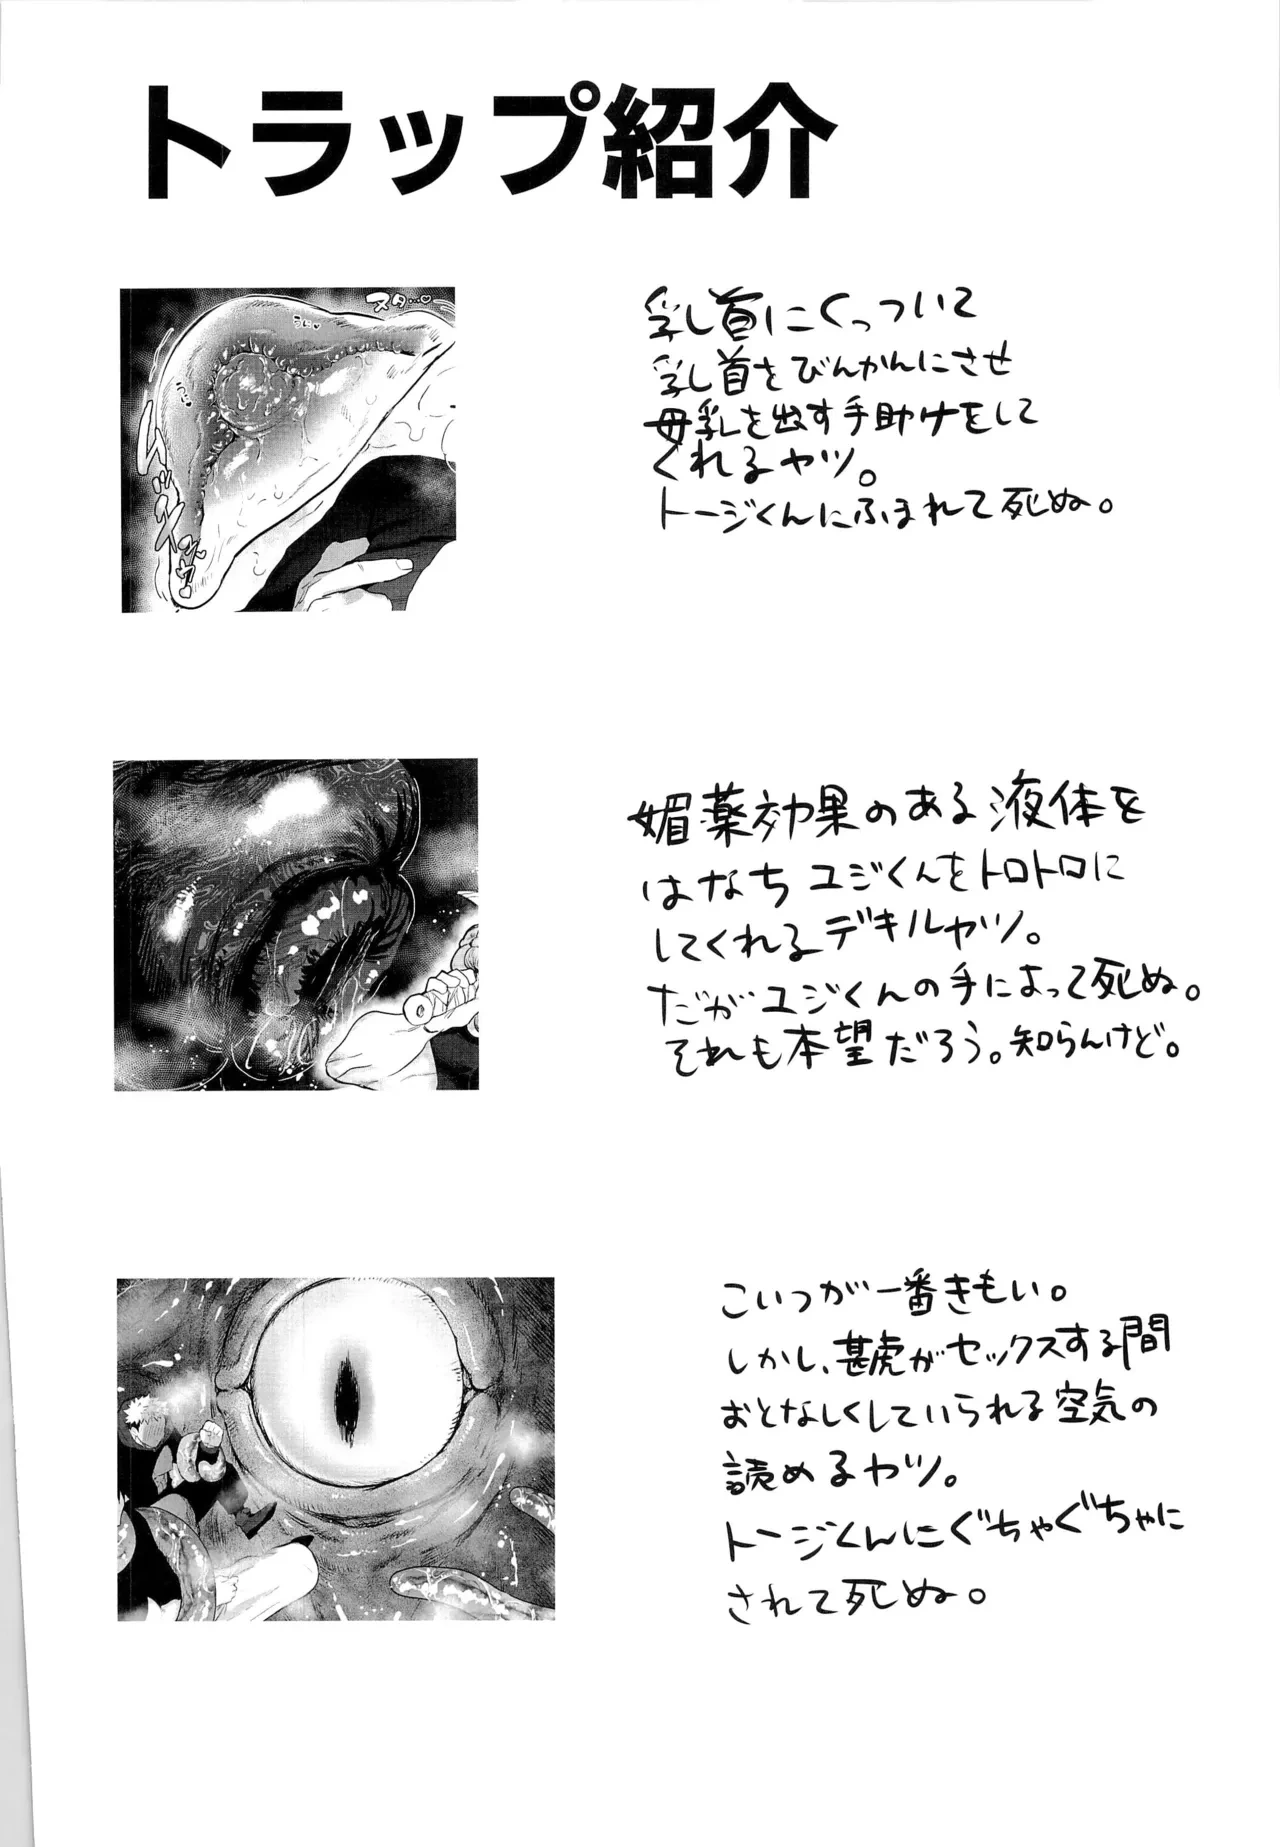 トラップ紹介
乳首にくっついて
乳首をびんかんにさせ
母乳を出す手助けをして
くれるヤツ。
トージくんにふまれて死ぬ。
媚薬効果のある液体を
はなちユジくんをトロトロに
してくれるデキルヤツ。
だがユジくんの手によって死ぬ。
それも本望だろう。知らんけど。
こいつが一番きもい。
しかし、甚虎がセックスする間
おとなしくしていられる空気の
読めるヤツ。
トージくんにぐちゃぐちゃに
されて死ぬ。